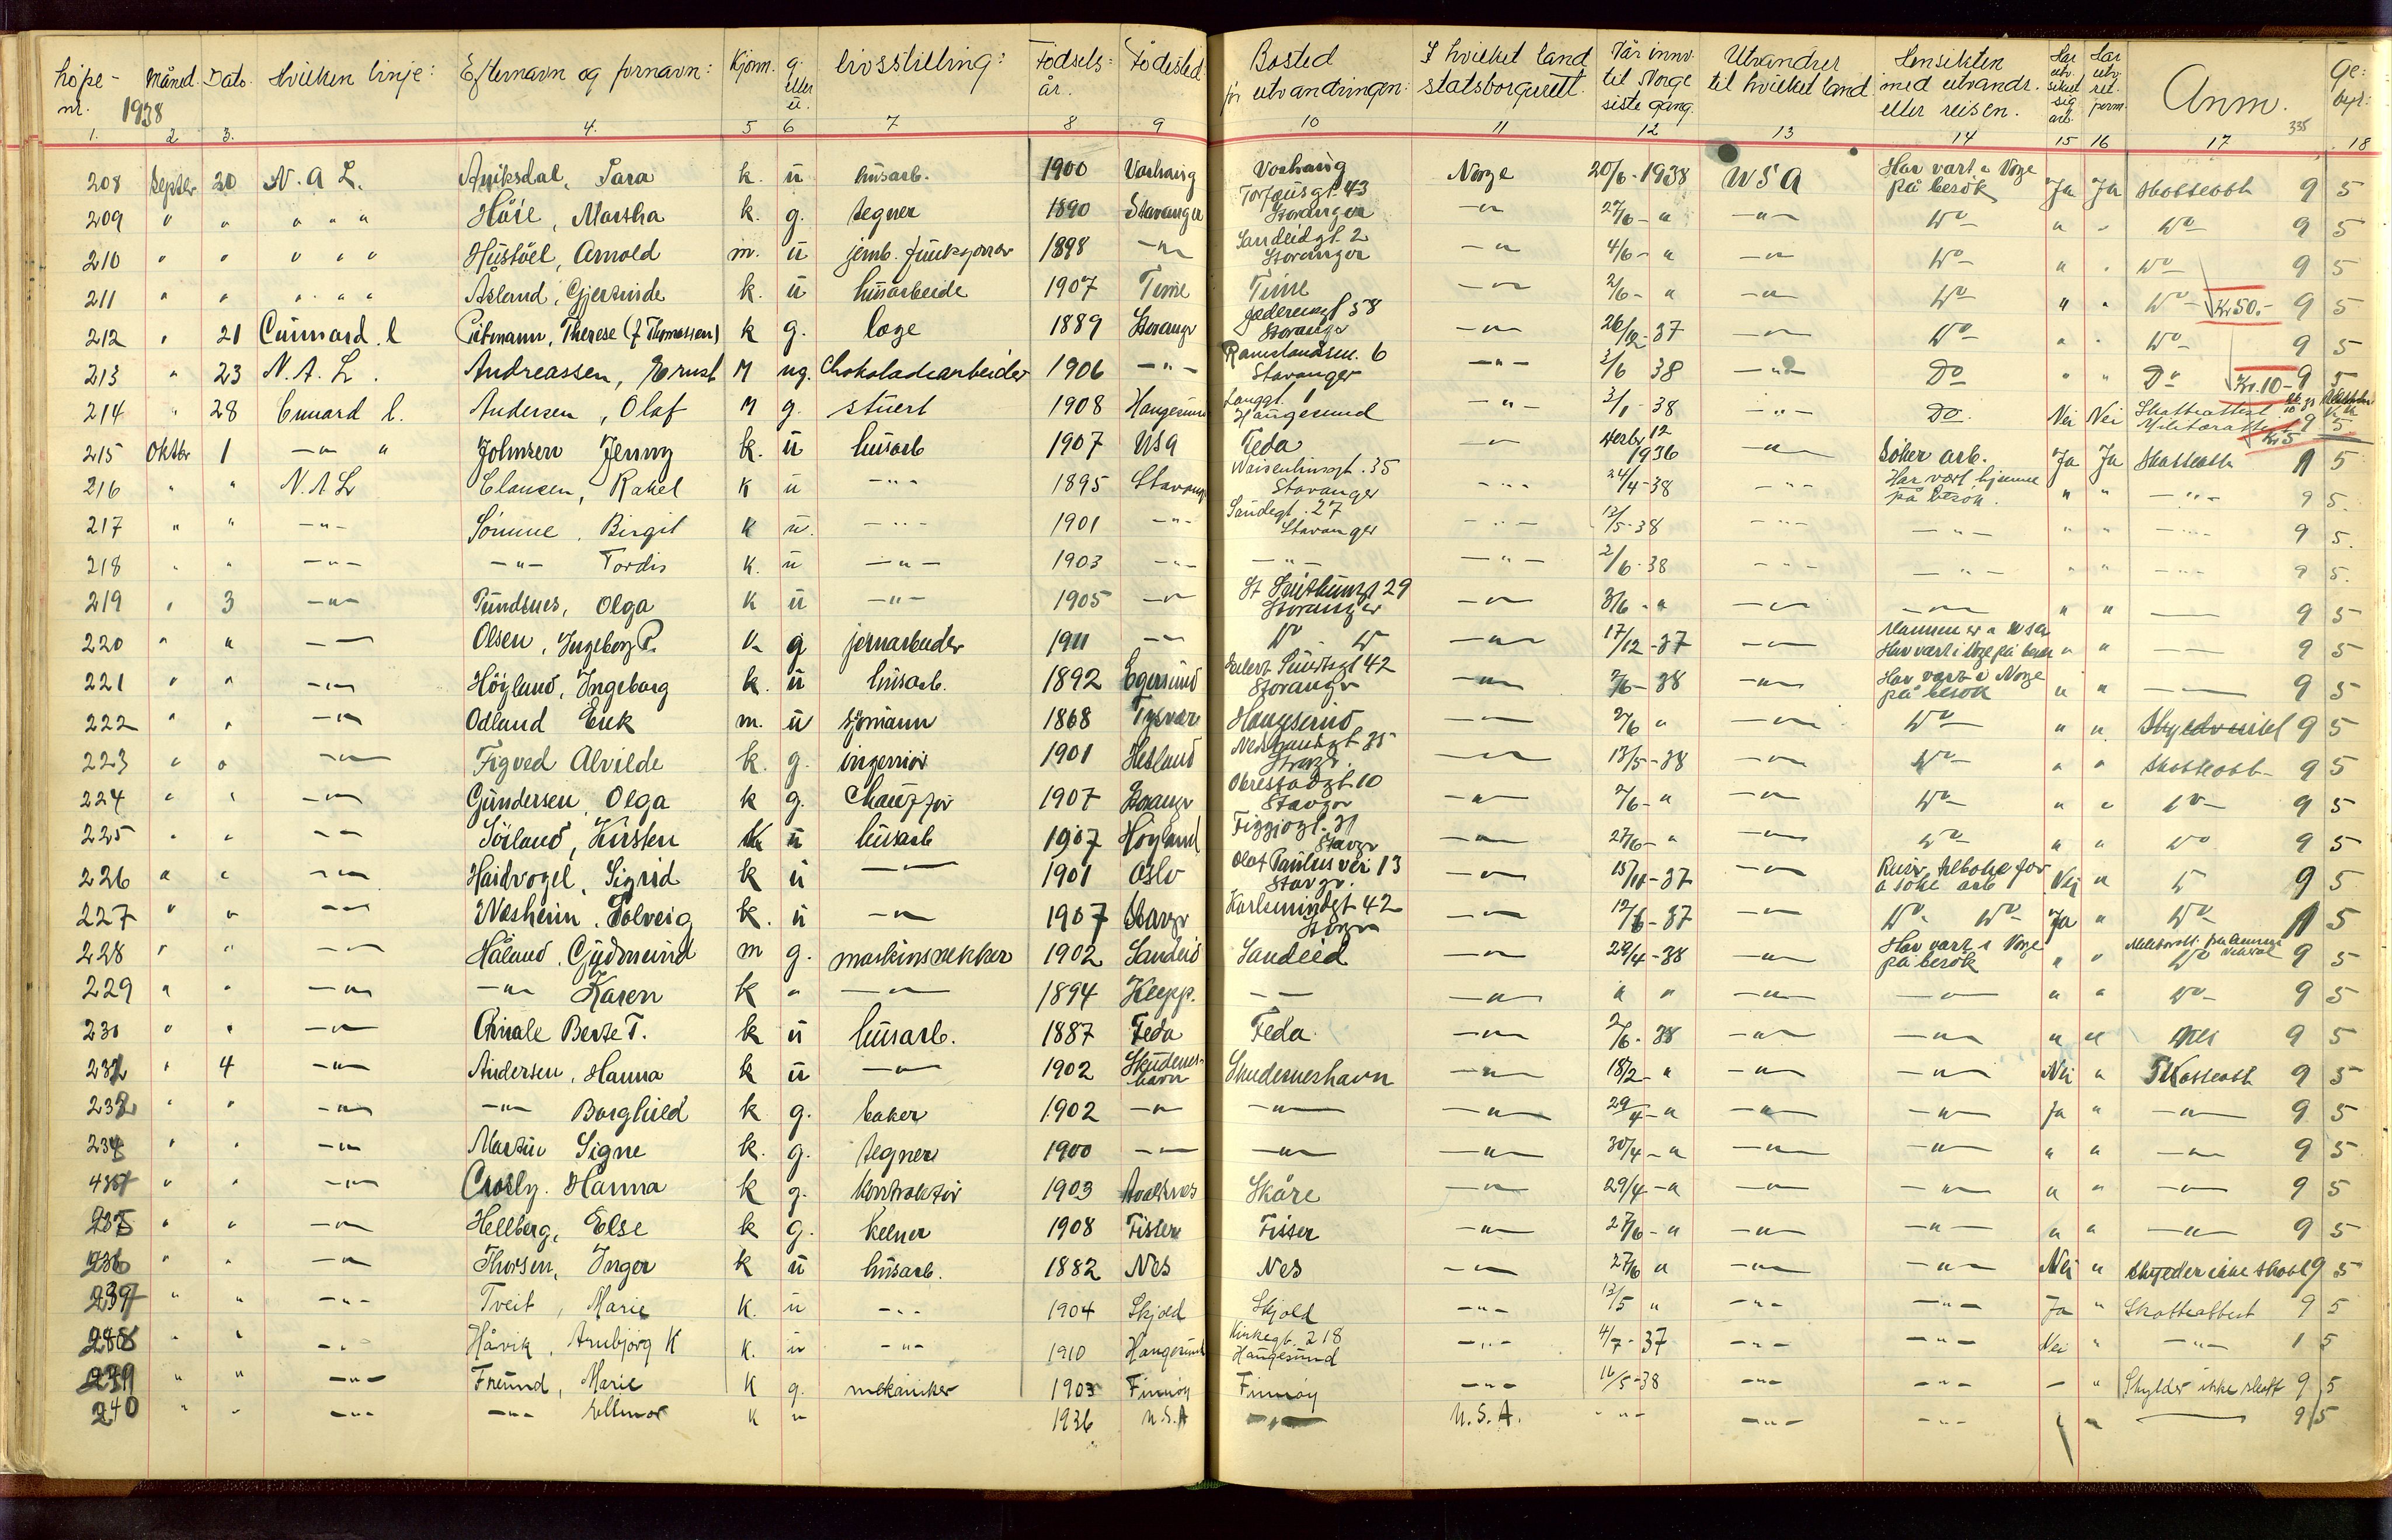 Løpe-nr. Måned 1938 Dato. Hvilken linje: Efternavn og fornavn: Kjønn. g. eller u. Livsstilling: Fødsels-år. Fødested: Bosted før utvandringen: I hvilket land statsborgerett. Når innv. til Norge siste gang. Utvandrer til hvilket land Hensikten med utvandr. eller reisen. Har utv. sikret sig arb. Har utv. ret. perm. Anm. 335 Ge-byr:
1. 2 3. 4. 5 6 7 8 9 10 11 12 13 14 15 16 17 18
208 Septbr 20 N. A L. Auksdal, Sara k. u husarb. 1900 Varhaug Varhaug Norge 20/6-1938 USA Har vært i Norge på besøk Ja Ja Skatteatt 9 5
209 " " " " " Håie, Martha k. g. tegner 1890 Stavanger Torfæusgt. 43 Stavanger -"- 27/6- " -"- Do " " Do 9 5
210 " " " " " Hustøel, Arnold m. u 1898 -"- Sandeidgt. 2 Stavanger -"- 4/6- " -"- Do " " Do 9 5
211 " " " " " Åsland, Gjertinde k. u husarbeide 1907 Time Time -"- 2/6- " -"- Do " " Do Kr 50.- 9 5
212 " 21 Cunnard. l Pitmann, Therese (f Thomassen) k g. loge 1889 Stavangr Jæderengt 58 Stavanger -"- 26/12-37 -"- Do " " Do 9 5
213 " 23 N. A. L. Andreassen, Ernst M ug. Chokoladearbeider 1906 -"- Ramslandsm. 6 Stavanger -"- 3/6 38 -"- Do " " Do Kr. 10- 9 5
214 " 28 Cunard l. Andersen, Olaf M g. stuert 1908 Haugesund Langgt. 1 Haugesund -"- 3/1-38 -"- Do. Nei Nei Skatteattest Militærattest Kr 5 9 5
215 Oktbr 1 -"- " Johnsen Jenny k. u husarb 1907 USA Feda -"- 1936 -"- Søker arb. Ja Ja Skatteatt 1 5
216 " " N.A.L Clausen, Rakel K u -"- 1895 Stavangr Waisenhusgt. 35 Stavanger -"- 24/4-38 -"- Har vært hjemme på besøk. " " -"- 9 5.
217 " " -"- Sømme, Birgit K u. -"- 1901 -"- Sandegt. 27 Stavanger -"- 12/5-38 -"- -"- " " -"- 9 5.
218 " " -"- -"- Tordis K. u -"- 1903 -"- -"- -"- 2/6-38 -"- -"- " " -"- 9 5.
219 " 3 -"- Pundsnes, Olga K u -"- 1905 -"- 29 Stavanger -"- 3/6- " -"- -"- " " — 9 5
220 " " -"- Olsen, Ingeborg P. k g jernarbeider 1911 -"- Do Do -"- 17/12-37 -"- Mannen er i USA Har vært i Norge på besøk " " -"- 9 5
221 " " -"- Høyland, Ingeborg k. u husarb. 1892 Egersund 42 Stavangr -"- 2/6-38 -"- Har vært i Norge på besøk " " — 9 5
222 " " -"- Odland Erik m. u sjømann 1868 Tysvær Haugesund -"- 2/6 " -"- Do " " 9 5
223 " " -"- Figved Alvilde k. g. ingeniør 1901 Hetland Nedstrandsgt 35 Stvgr. -"- 13/5-38 -"- Do " " Skatteatt- 9 5
224 " " -"- Gundersen Olga k g. Chauffør 1907 Stavangr 10 Stavgr -"- 2/6- " -"- Do " " Do 9 5
225 " " -"- Sørland, Kirsten K u husarb 1907 Høyland Figgjogt. 31 Stavgr -"- 27/6- " -"- Do " " Do 9 5
226 " " -"- Haidvogel, Sigrid k u -"- 1901 Oslo Olaf Paulus vei 13 Stavgr. -"- 15/11-37 -"- Reiser tilbake for å søke arb Nei " Do 9 5
227 " " -"- Næsheim, Solveig k. u -"- 1907 Stavgr Karlsmindegt 42 Stavgr -"- 12/6-37 -"- Do Do Ja " Do 1 5
228 " " -"- Håland, Gudmund m g. maskinsnekker 1902 Sandeid Sandeid -"- 29/4-38 -"- Har vært i Norge på besøk " " Do 9 5
229 " " -"- -"- Karen k " -"- 1894 Klepp. -"- -"- " " -"- -"- " " Do 9 5
230 " " -"- Berte T. k u husarb. 1887 Feda Feda -"- 2/6-38 -"- -"- " " 9 5
231 " 4 -"- Andersen, Hanna k u -"- 1902 Skudenes-havn Skudeneshavn -"- 18/2- " -"- -"- Nei " Skatteatt 9 5
232 " " -"- -"- Borghild k g. baker 1902 -"- -"- -"- 29/4- " -"- -"- Ja " -"- 9 5
234 " " -"- Martin Signe k. g. tegner 1900 -"- -"- -"- 30/4- " -"- -"- " " -"- 9 5
" " -"- Crosby, Hanna k g. kontraktør 1903 Avaldsnes Skåre -"- 29/4- " -"- -"- " " -"- 9 5
235 " " -"- Hellberg, Else k g. kelner 1908 Fister Fister -"- 27/6- " -"- -"- " " -"- 9 5
236 " " -"- Thorsen, Inger k u husarb. 1882 Nes Nes -"- 27/6 " -"- -"- Nei " Skylder ikke skatt 9 5
237 " " -"- Tveit, Marie K. u -"- 1904 Skjold Skjold -"- 13/5 " -"- -"- Ja " Skatteattest 9 5
238 " " -"- Håvik, Arnbjørg K K. u -"- 1910 Haugesund Kirkegt. 218 Haugesund -"- 4/7-37 -"- -"- Nei " -"- 1 5
239 " " -"- Freund, Marie K g. mekaniker 1903 Finnøy Finnøy -"- 16/5-38 -"- -"- — " Skylder ikke skatt 9 5
240 " " -"- -"- Ellinor K u 1936 U.S.A -"- U.S.A. -"- -"- -"- " — 9 5